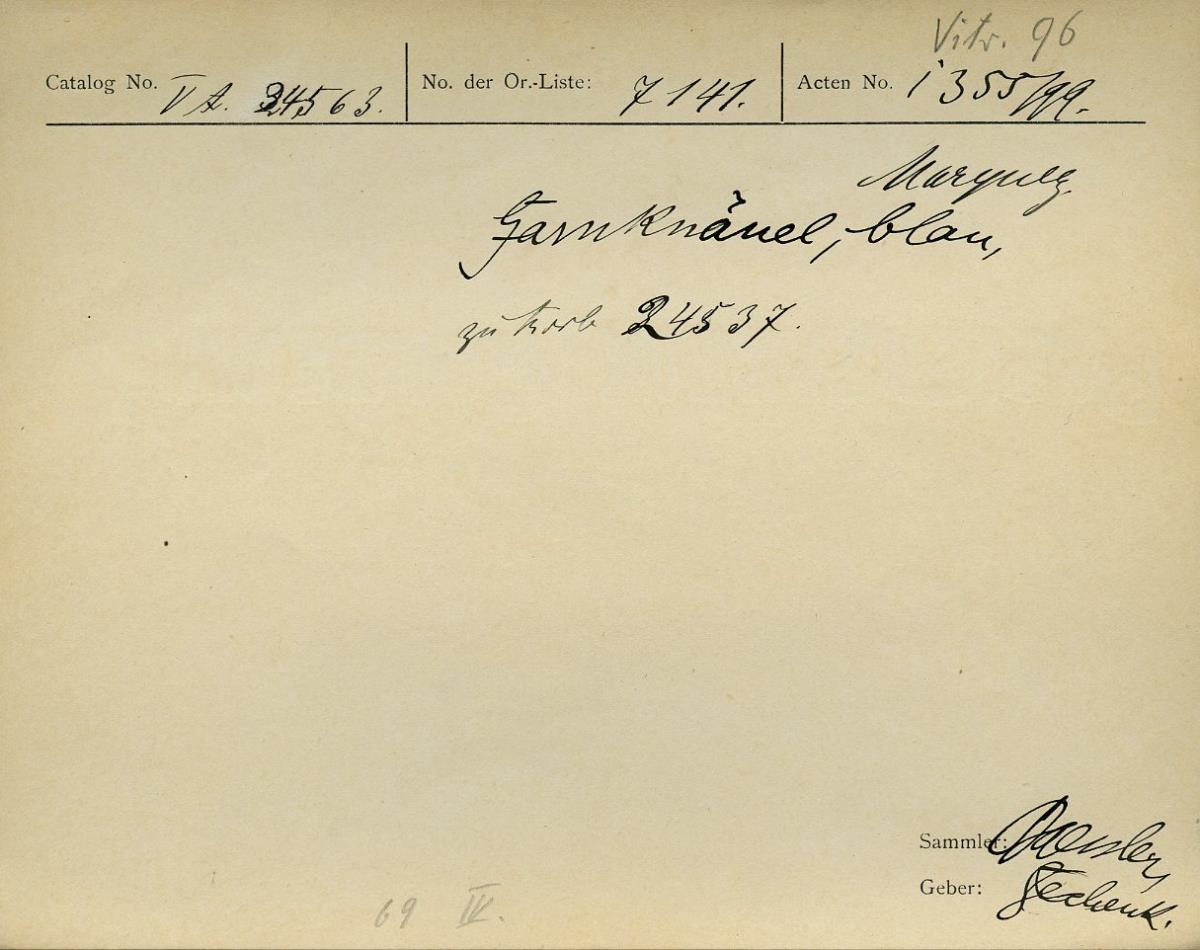 Vitr. 96
Catalog No. V A. 24563. No. der Or.-Liste: 7141. Acten No. 1355/99.
Marquez.
Garnknäuel, blau,
zu Korb 24537.
Sammler: Baessler,
Geber: Geschenk.
69 IV.